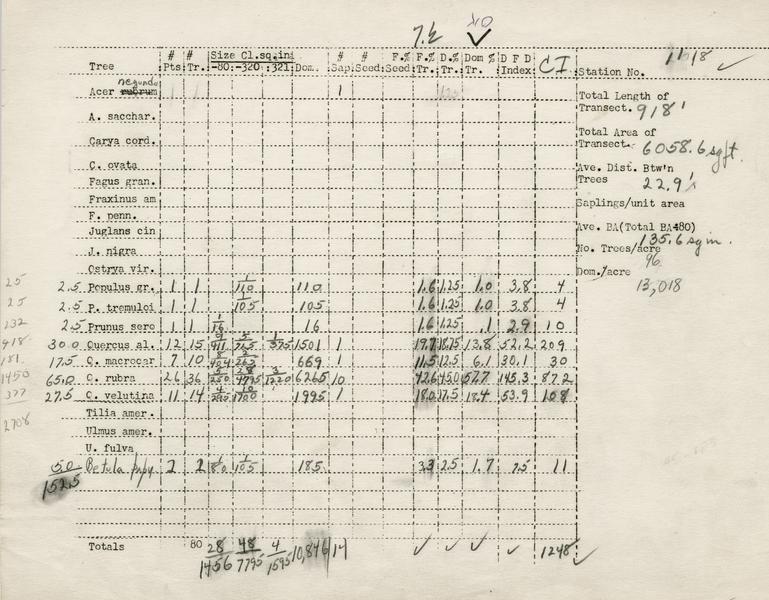 7.2
# # Size Cl.sq.in # # F.% F.% D.% Dom % D F D CI
Tree Pts. Tr. -80 -320 321 Dom. Sap. Seed. Seed Tr. Tr. Tr. Index
Station No. 1118
negundo
Acer rubrum 1
Total Length of
Transect. 918'
A. sacchar.
Total Area of
Transect. 6058.6 sq ft.
Carya cord.
C. ovata
Ave. Dist. Btw'n
Trees 22.9'
Fagus gran.
Fraxinus am
Saplings/unit area
F. penn.
Juglans cin
Ave. BA(Total BA÷80)
135.6 sq in.
J. nigra
No. Trees/acre
96
Ostrya vir.
Dom./acre
13,018
25 2.5 Populus gr. 1 1 1/110 110 1.6 1.25 1.0 3.8 4
25 2.5 P. tremuloi 1 1 1/105 105 1.6 1.25 1.0 3.8 4
232 2.5 Prunus sero 1 1 1/16 16 1.6 1.25 .1 2.9 10
918 30.0 Quercus al. 12 15 1501 1 19.7 18.75 13.8 52.2 209
181 17.5 Q. macrocar 7 10 669 1 11.5 12.5 6.1 30.1 30
1450 65.0 Q. rubra 26 36 6265 10 42.6 45.0 57.7 145.3 872
377 27.5 Q. velutina 11 14 1995 1 18.0 17.5 18.4 53.9 108
2708
Tilia amer.
Ulmus amer.
U. fulva
5.0 Betula papy. 2 2 1/80 1/105 185 3.3 2.5 1.7 7.5 11
152.5
Totals 80 28/1456 48/7795 4/1595 10,846 14 1248